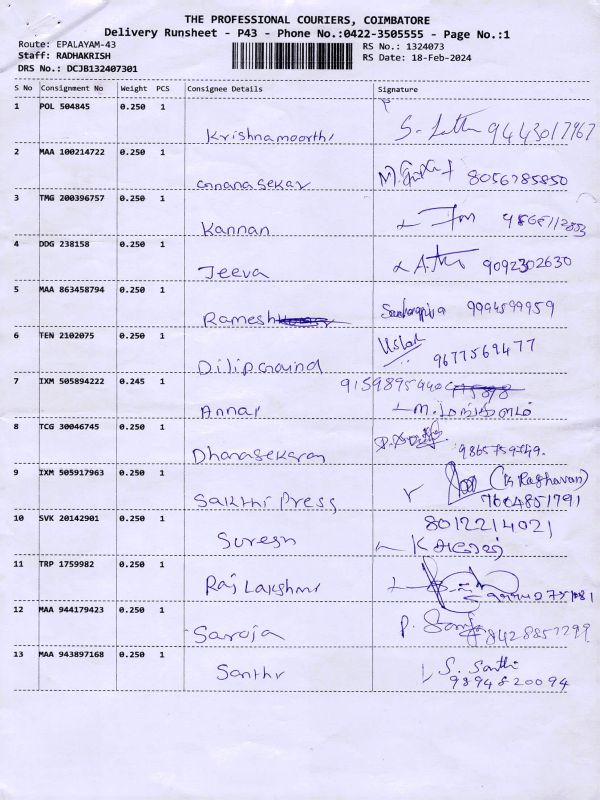 THE PROFESSIONAL COURIERS, COIMBATORE
Delivery Runsheet - P43 - Phone No.:0422-3505555 - Page No.:1
Route: EPALAYAM-43 RS No.: 1324073
Staff: RADHAKRISH RS Date: 18-Feb-2024
DRS No.: DCJB132407301
S No Consignment No Weight PCS Consignee Details Signature
1 POL 504845 0.250 1
Krishnamoorthi 9443017967
2 MAA 100214722 0.250 1
Gnanasekar 8056785850
3 TMG 200396757 0.250 1
Kannan
4 DDG 238158 0.250 1
Jeeva 9092302630
5 MAA 863458794 0.250 1
Ramesh 9994599959
6 TEN 2102075 0.250 1
Dilipchand 9677569477
7 IXM 505894222 0.245 1
Annai
8 TCG 30046745 0.250 1
Dhanasekaran 9865759749.
9 IXM 505917963 0.250 1
Sakthi Press (K Raghavan)
7604851791
10 SVK 20142901 0.250 1 8012214021
Suresh K
11 TRP 1759982 0.250 1
Raj Lakshmi
12 MAA 944179423 0.250 1
Saroja P. Saroja 8428857299
13 MAA 943897168 0.250 1
Santhi S. Santhi
9894820094